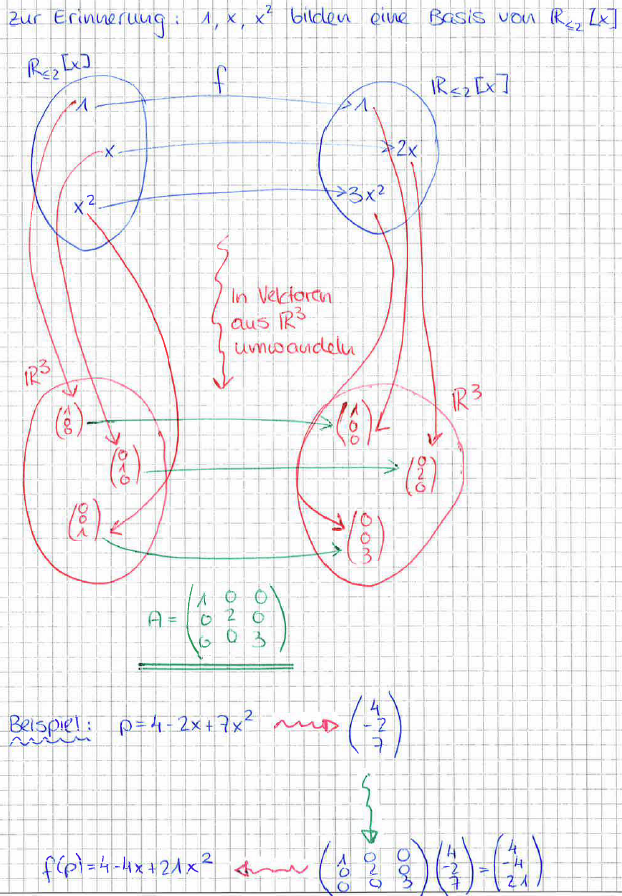 Zur Erinnerung: 1, x, x² bilden eine Basis von ℝ≤2[x]
ℝ≤2[x] f ℝ≤2[x]
1 1
x 2x
x² 3x²
In Vektoren
aus ℝ³
umwandeln
ℝ³ ℝ³
(1 0 0) (1 0 0)
(0 1 0) (0 2 0)
(0 0 1) (0 0 3)
A = (1 0 0
0 2 0
0 0 3)
Beispiel: p = 4 - 2x + 7x² (4 -2 7)
f(p) = 4 - 4x + 21x² (1 0 0 / 0 2 0 / 0 0 3) (4 -2 7) = (4 -4 21)